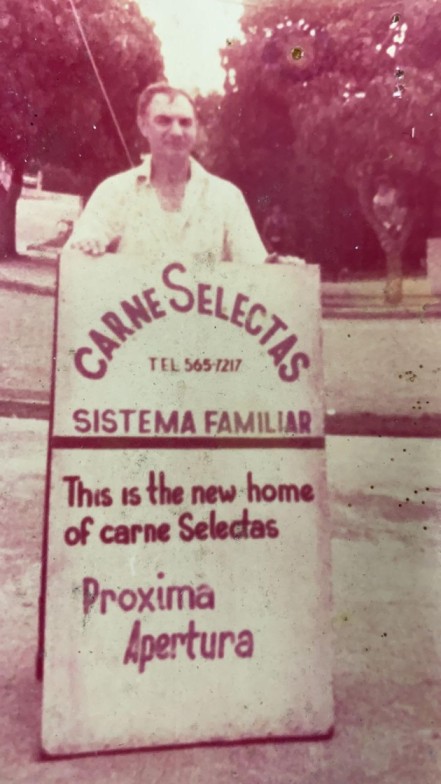 CARNE SELECTAS
TEL 565-7217
SISTEMA FAMILIAR
This is the new home
of carne Selectas
Proxima
Apertura